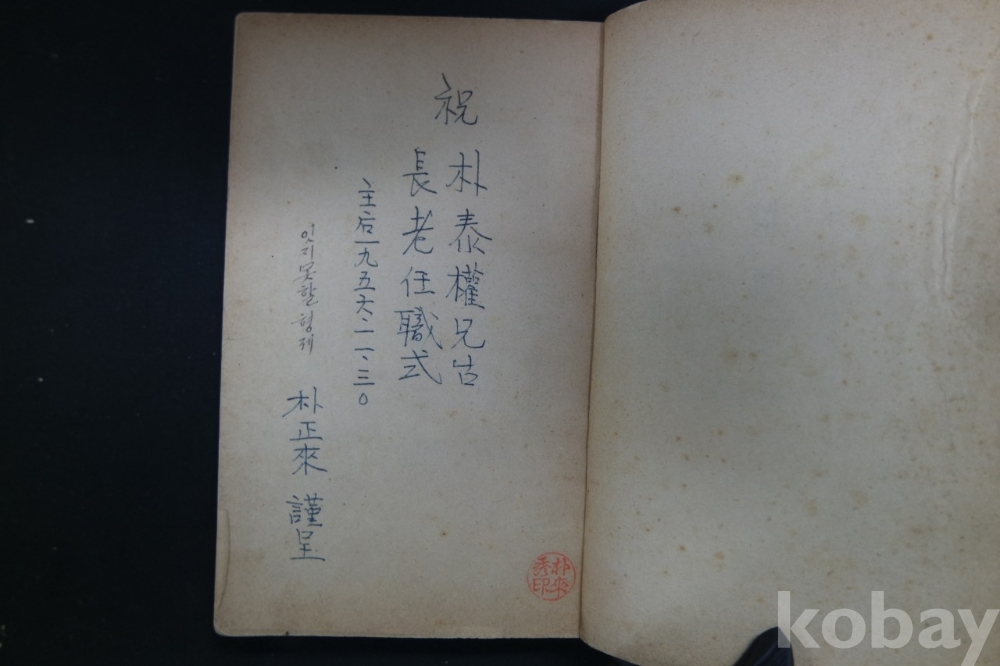 祝
朴泰權兄
長老任職式
主后一九五六·一一、三〇
잇지못할 형제
朴正來 謹呈
朴來
秀印
kobay